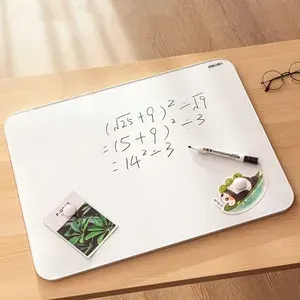 deli
(√25 + 9)² ÷ √9
= (5 + 9)² ÷ 3
= 14² ÷ 3